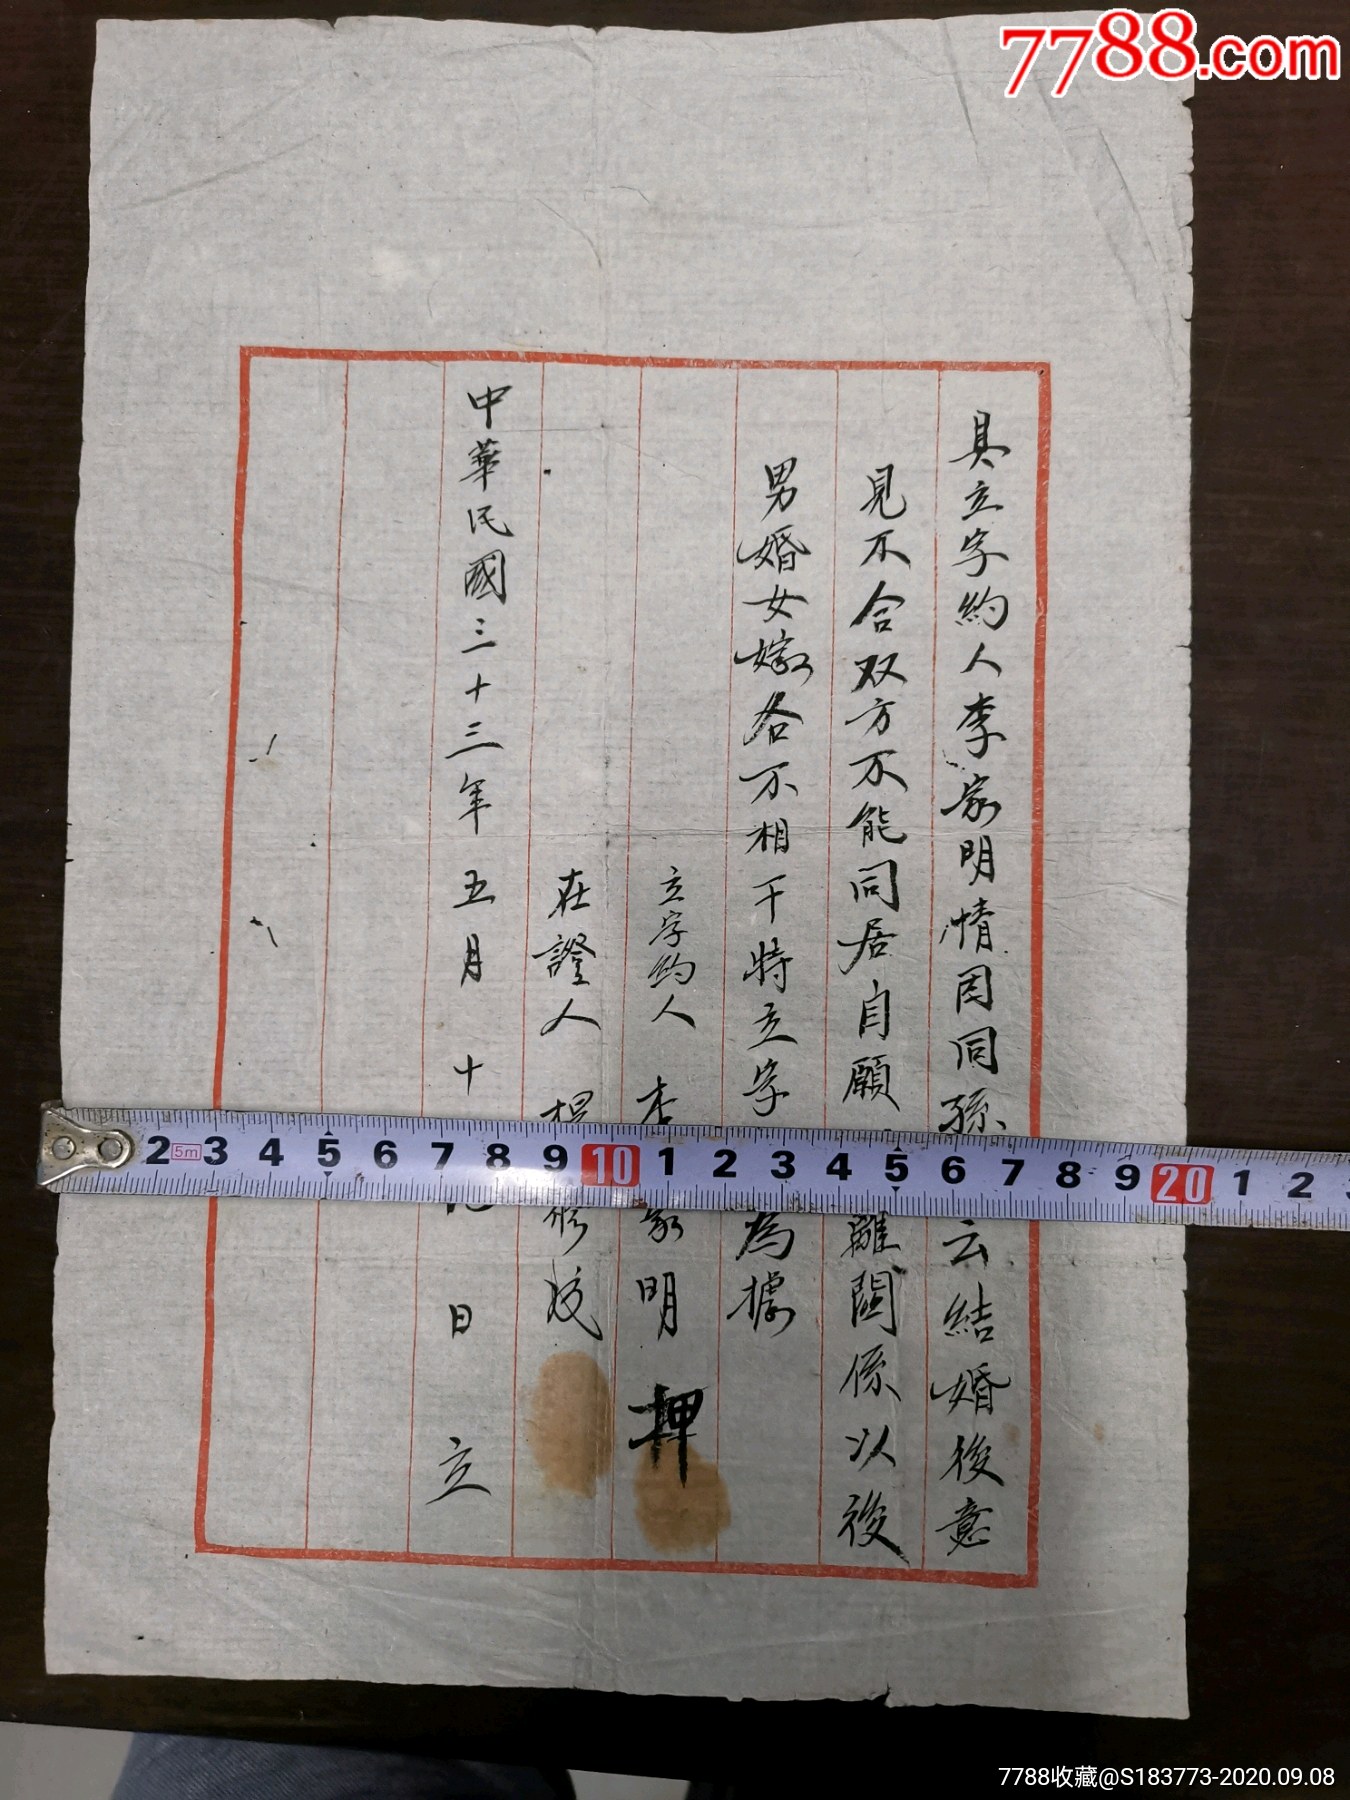 7788.com
具立字約人李家明情因同孫云結婚後意
見不合双方不能同居自願離関係以後
男婚女嫁各不相干特立字為據
立字約人 李家明 押
在證人 修
中華民國三十三年五月十日立
2 5m 3 4 5 6 7 8 9 10 1 2 3 4 5 6 7 8 9 20 1 2
7788收藏@S183773-2020.09.08